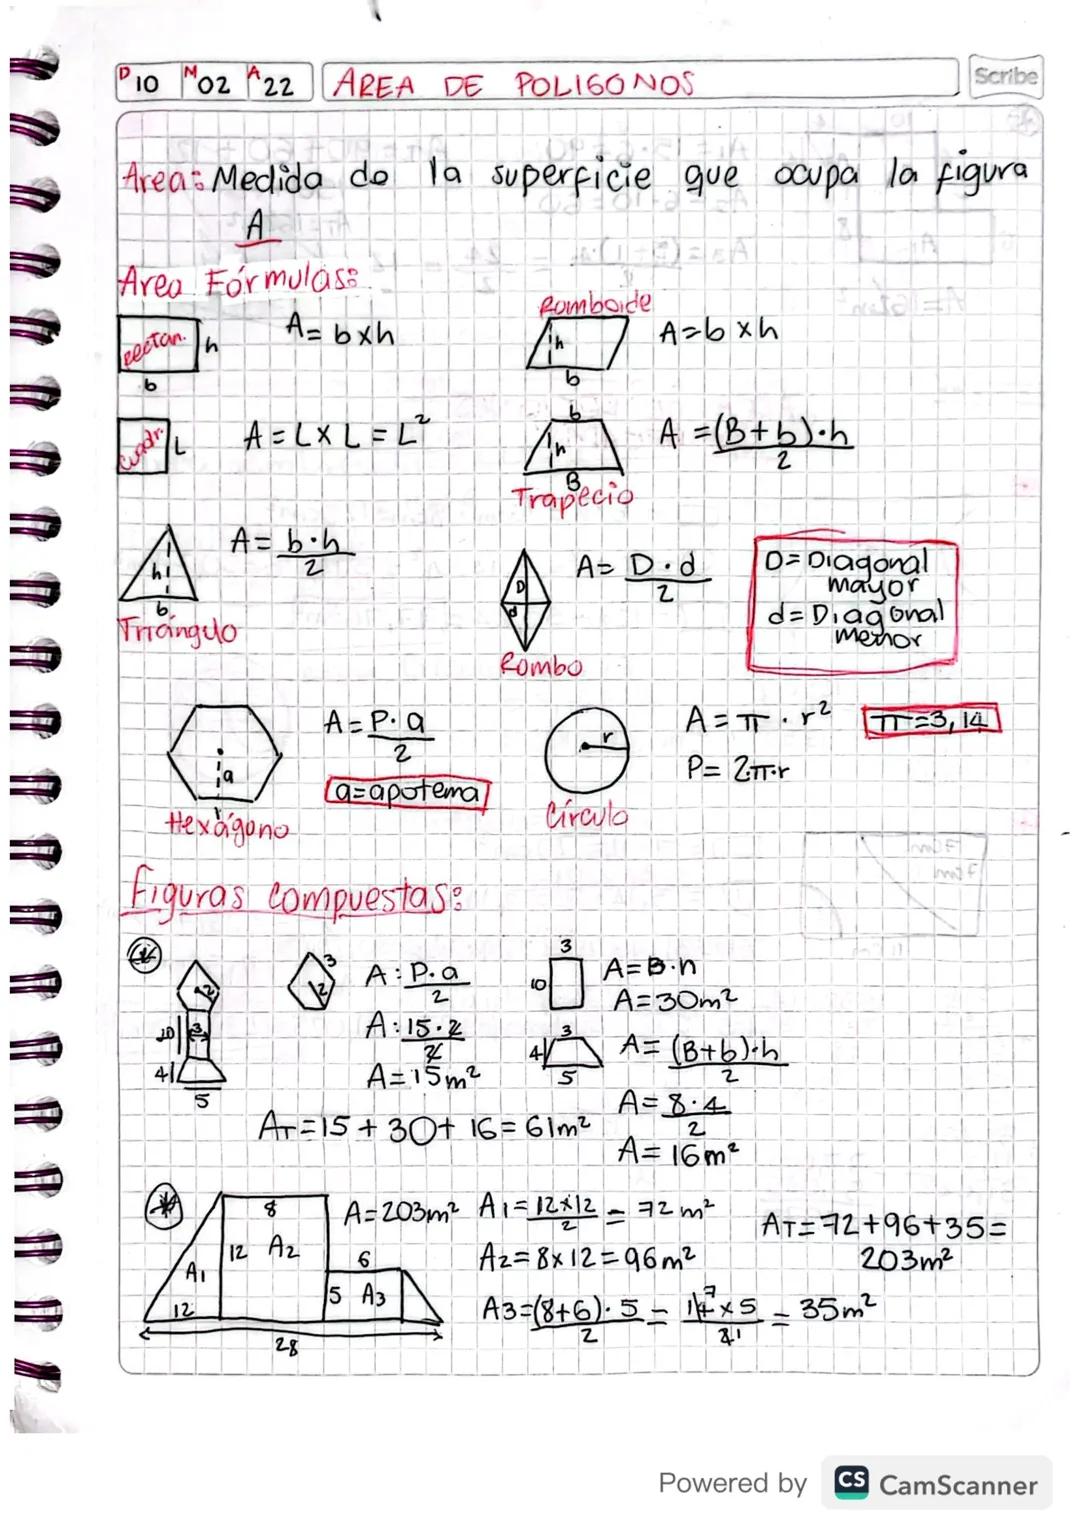 D 10 M 02 A 22 AREA DE POLIGONOS Scribe
Area: Medida de la superficie que ocupa la figura
A
Area Fórmulas:
Rectan. h A= b x h
b
Romboide
h A=b x h
b
Cuadr. L A = L X L = L²
b
h A =(B+b)·h
2
B
Trapecio
h A= b·h
2
b
Triángulo
D d A= D·d
2
Rombo
D= Diagonal
mayor
d= Diagonal
menor
a A= P·a
2
a=apotema
Hexágono
r A= π · r² π=3,14
P= 2π·r
Círculo
Figuras compuestas:
2
10 3
4
5
3
2
A: P·a
2
A: 15·2
2
A=15m²
3
10 A=B·h
A=30m²
3
4 A= (B+b)·h
2
5
A= 8·4
2
A= 16m²
AT=15 + 30+ 16= 61m²
8
12 A2
A1
12
6
5 A3
28
A=203m²
A1= 12x12 = 72 m²
2
A2= 8x12=96m²
A3=(8+6)·5 = 14 7 x 5 = 35m²
2 2 1
AT=72+96+35=
203m²
Powered by CS CamScanner